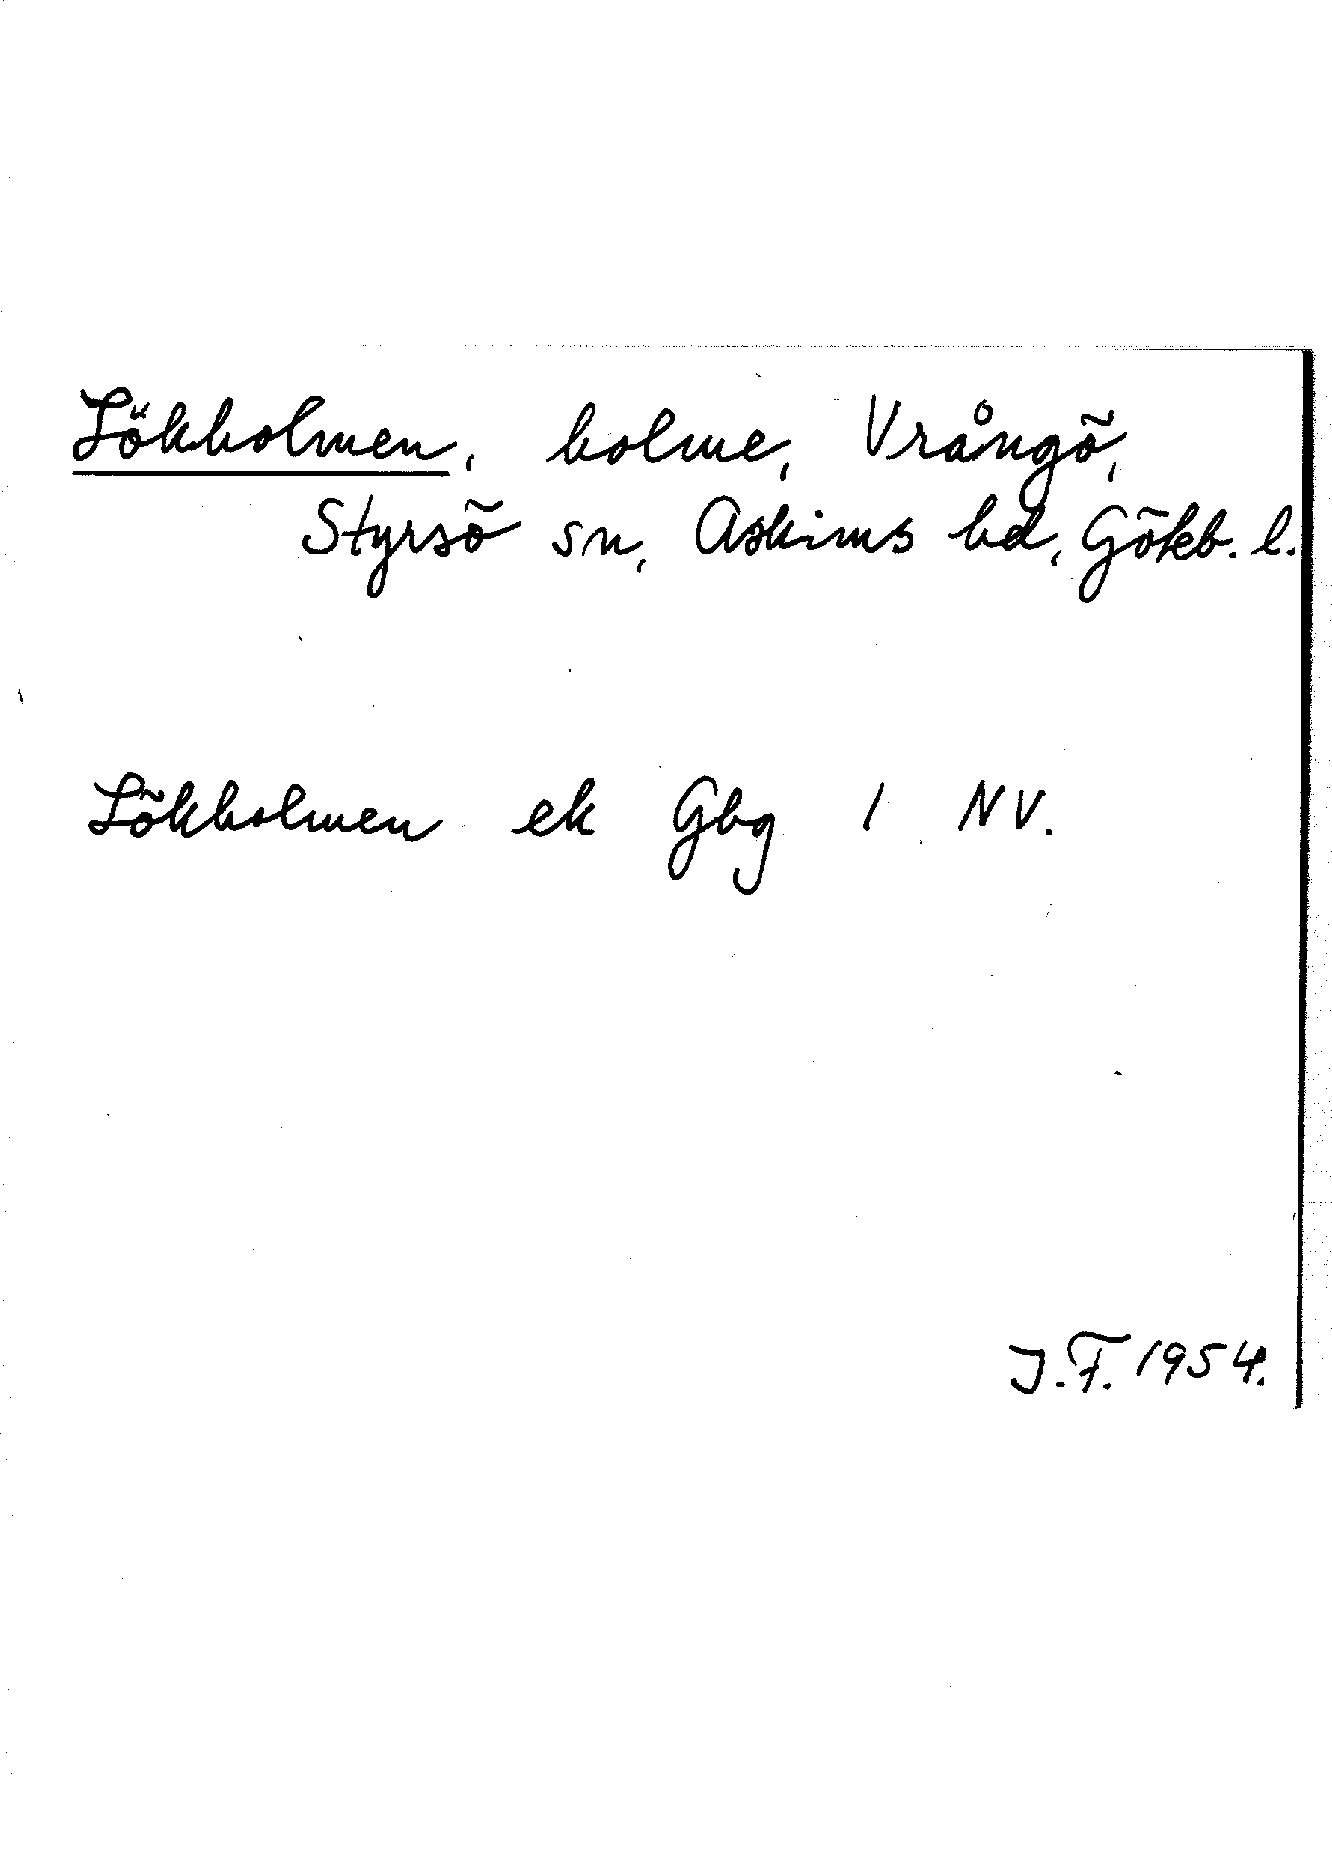 Lökholmen, holme, Vrångö,
Styrsö sn, Askims hd, Göteb. l.
Lökholmen ek Gbg 1 NV.
J.F. 1954.